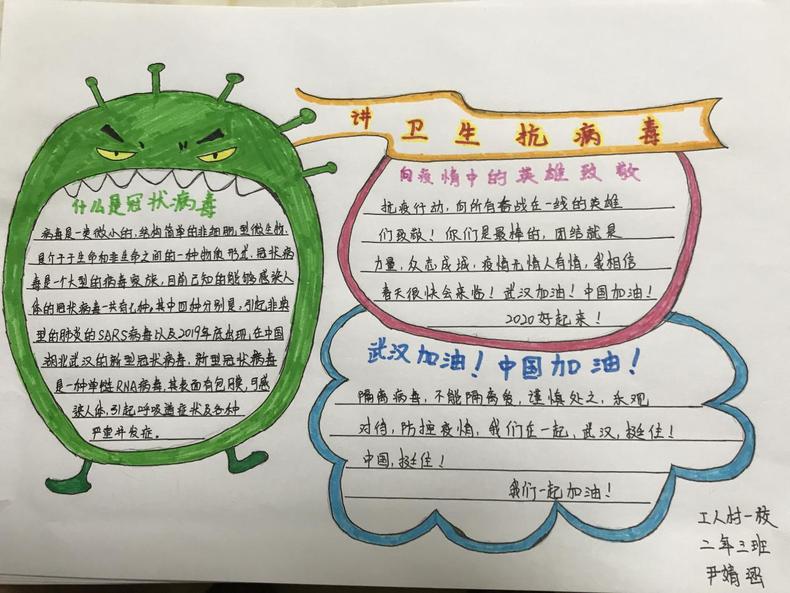 讲卫生抗病毒
什么是冠状病毒
病毒是一类微小的，结构简单的非细胞型微生物.
是介于生命和非生命之间的一种物质形式，冠状病
毒是一个大型的病毒家族，目前已知的能够感染人
体的冠状病毒一共有七种，其中四种分别是，引起非典
型的肺炎的SARS病毒以及2019年底出现，在中国
湖北武汉的新型冠状病毒，新型冠状病毒
是一种单链RNA病毒，其表面有包膜，可感
染人体，引起呼吸道症状及各种
严重并发症。
向疫情中的英雄致敬
抗疫行动，向所有奋战在一线的英雄
们致敬！你们是最棒的，团结就是
力量，众志成城，疫情无情人有情，我相信
春天很快会来临！武汉加油！中国加油！
2020好起来！
武汉加油！中国加油！
隔离病毒，不能隔离爱，谨慎处之，乐观
对待，防控疫情，我们在一起，武汉，挺住！
中国，挺住！
我们一起加油！
工人村一校
二年三班
尹婧